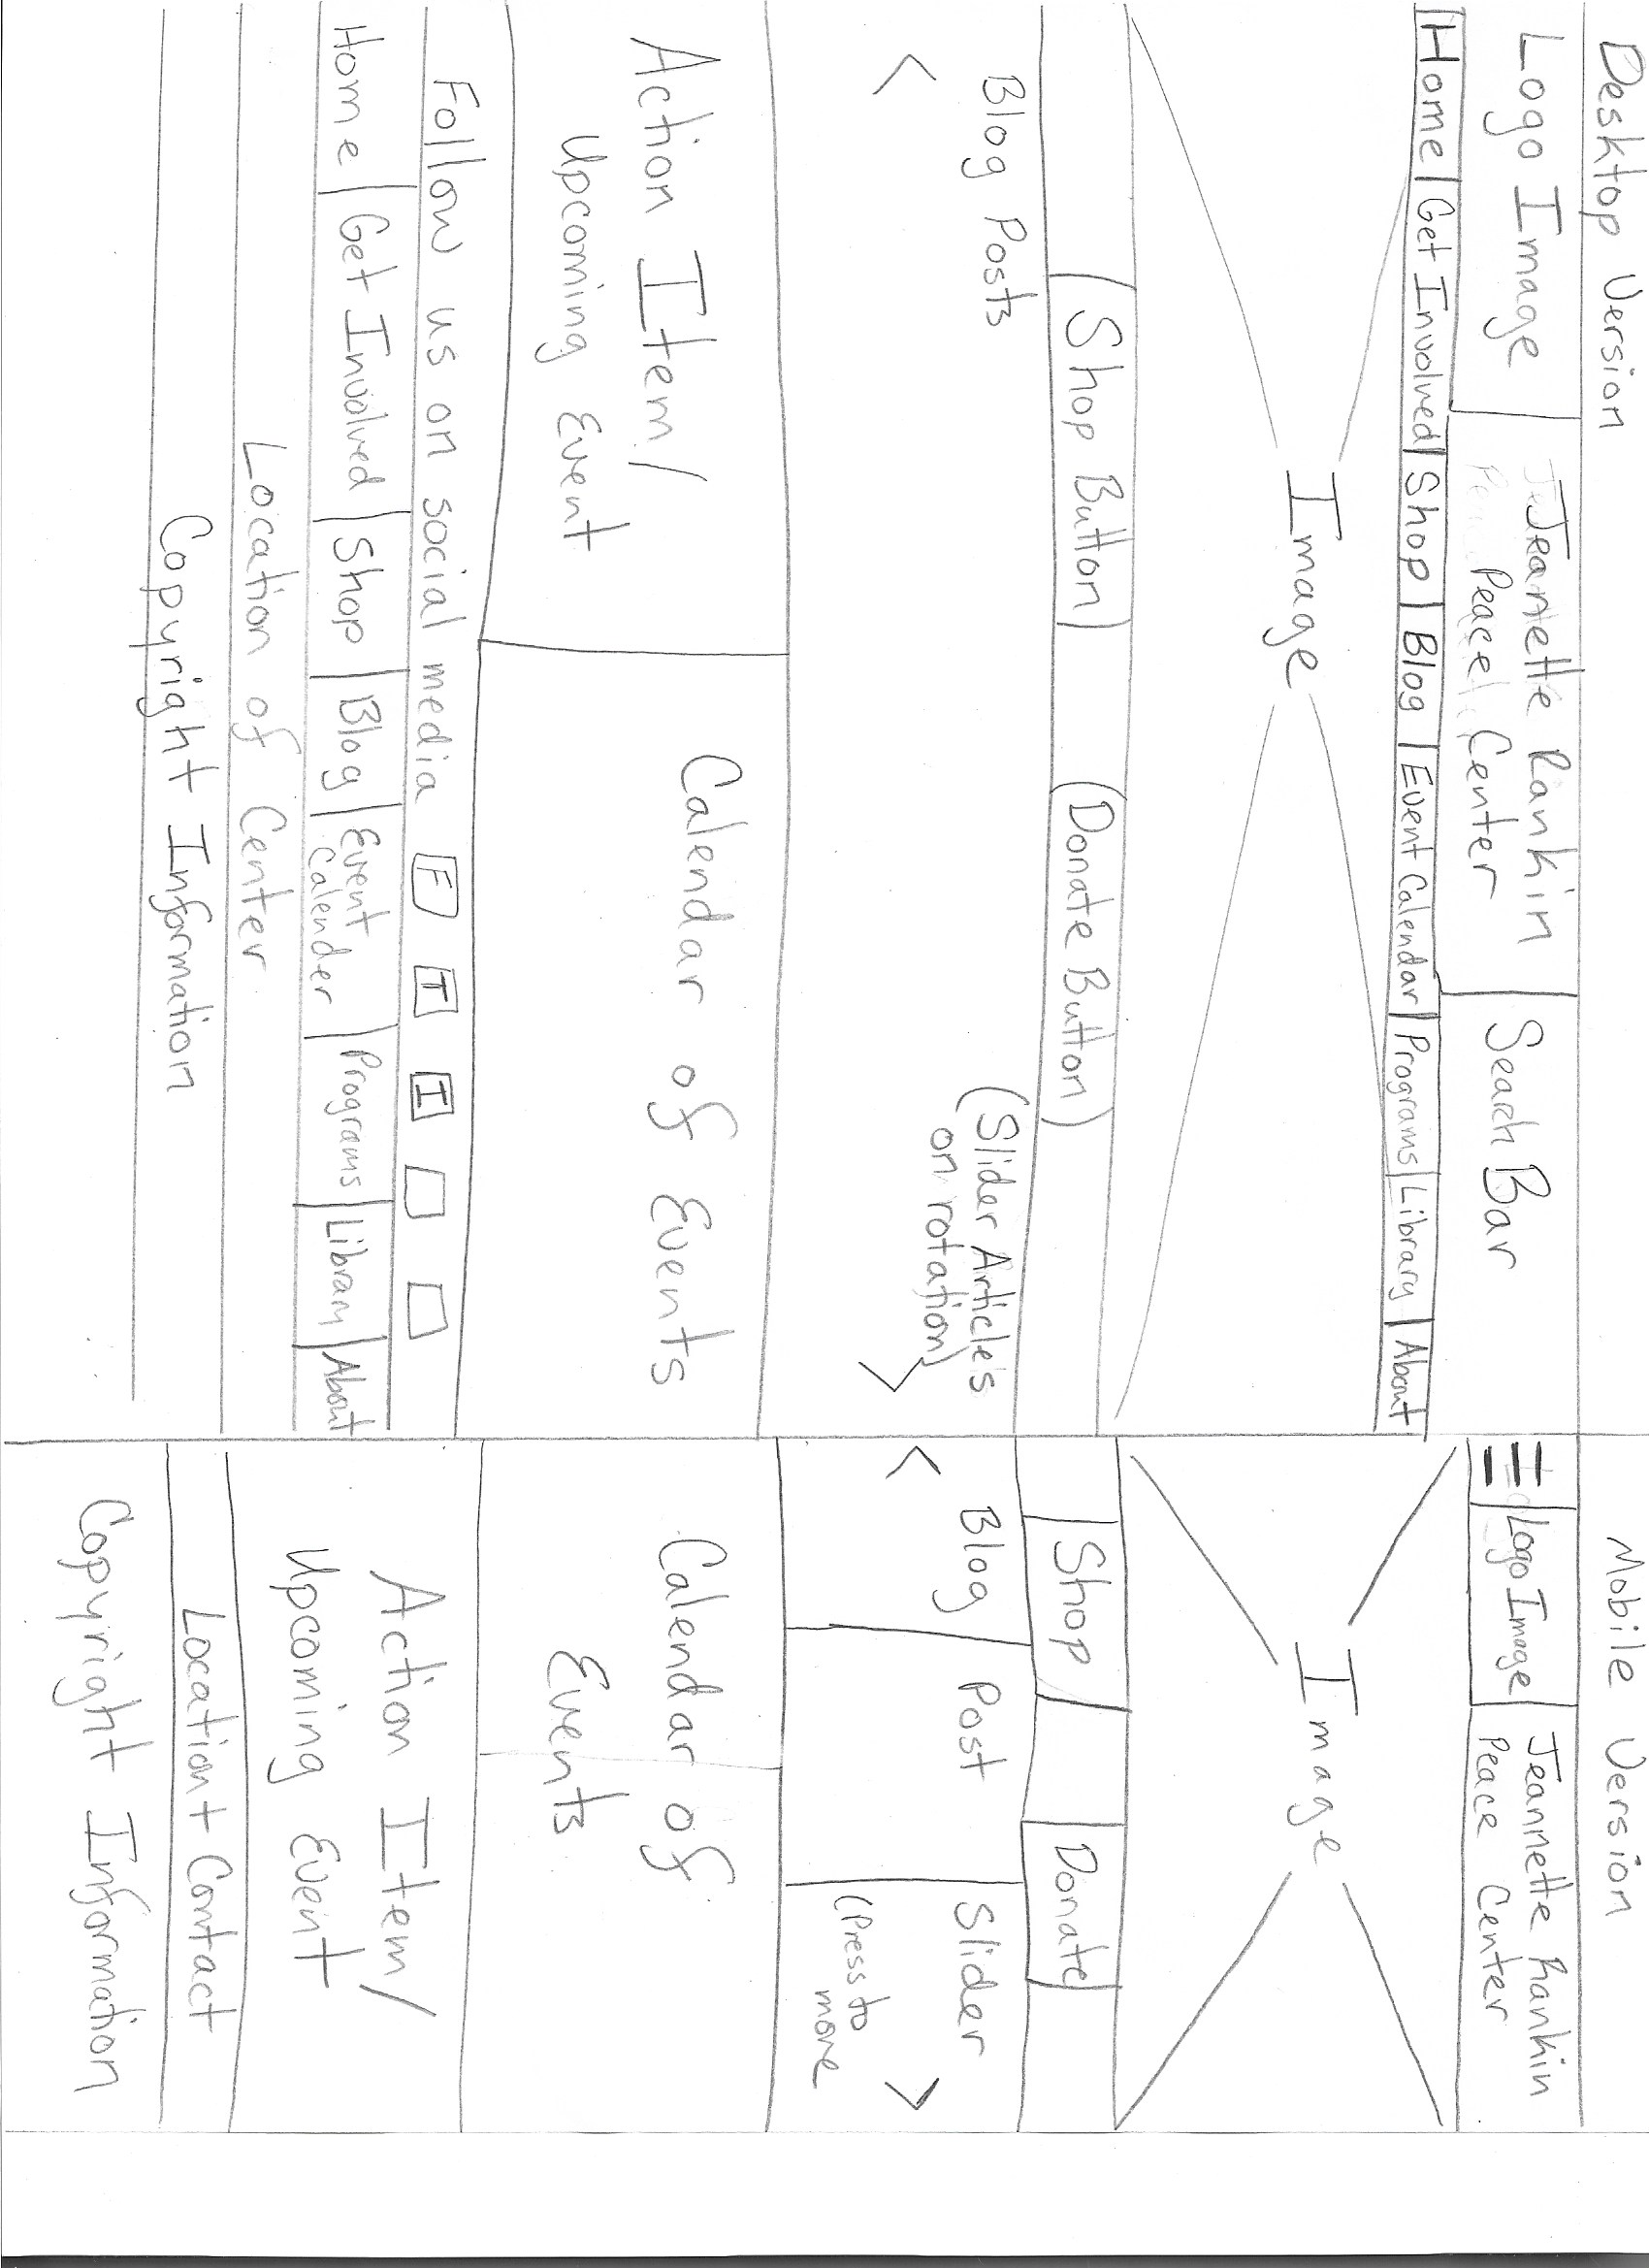 Desktop Version
Logo Image
Jeanette Rankin
Peace Center
Search Bar
Home | Get Involved | Shop | Blog | Event Calendar | Programs | Library | About
Image
(Shop Button)
(Donate Button)
Blog Posts
(Slider Article's
on rotation)
< >
Action Item/
Upcoming Event
Calendar of Events
Follow us on social media F T I
Home | Get Involved | Shop | Blog | Event Calender | Programs | Library | About
Location of Center
Copyright Information
Mobile Version
Logo Image
Jeannette Rankin
Peace Center
Image
Shop
Donate
< Blog Post Slider >
(Press to
move
Calendar of
Events
Action Item/
Upcoming Event
Location + Contact
Copyright Information